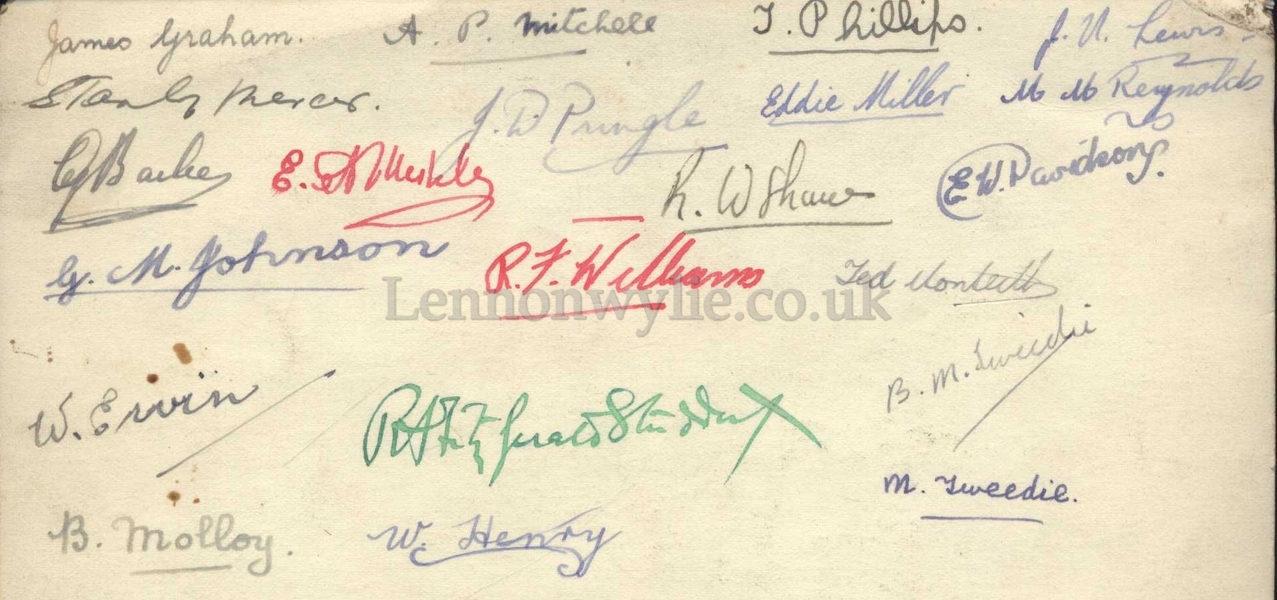 James Graham. A. P. Mitchell T. Phillips. J. N. Lewis
Stanley Mercer. J. D. Pringle Eddie Miller M M Reynolds
E. R. W Shaw E. W. Davidson
G. M. Johnson R. F. Williams Ted Monteith
Lennonwylie.co.uk
B. M. Tweedie
W. Ervin R Fitzgerald Studdert
M. Tweedie.
B. Molloy. W. Henry